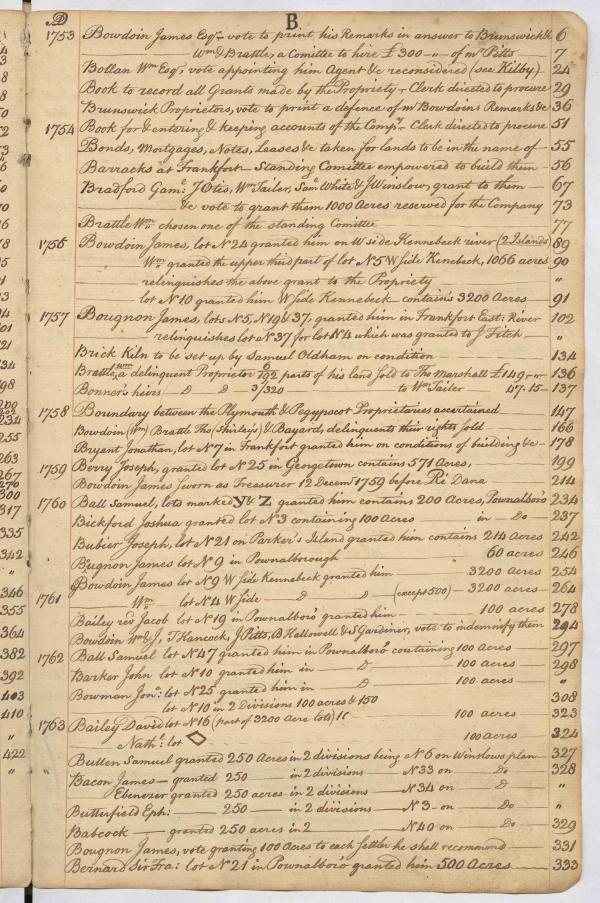 D
B
1753 Bowdoin James Esqr. vote to print his Remarks in answer to Brunswick &c 6
Wm & Brattle, a Comittee to hire £300 - " - of mr Pitts 7
Bollan Wm Esqr. vote appointing him Agent &c reconsidered (see Kilby) 24
Book to record all Grants made by the Propriety - Clerk directed to procure 29
Brunswick Proprietors, vote to print a defence of mr Bowdoins Remarks &c 36
1754 Book for &entering & keeping accounts of the Compy. Clerk directed to procure 51
Bonds, Mortgages, Notes, Leases &c taken for lands to be in the name of - 55
Barracks at Frankfort - Standing Comittee empowered to build them 56
Bradford Gam: J Otis, Wm Tailer, Saml White & J Winslow, grant to them 67
&c vote to grant them 1000 Acres reserved for the Company 73
Brattle Wm chosen one of the standing Comittee 77
1756 Bowdoin James, lot N 24 granted him on W side Kennebeck river (2 Islands) 89
Wm granted the upper third part of lot N 5 W side Kenebeck, 1066 acres 90
relinquishes the above grant to the Propriety "
lot N 10 granted him W side Kennebeck contains 3200 Acres 91
1757 Bougnon James, lots N 5, N 19 & 37, granted him in Frankfort East: River 102
relinquishes lot N 37 for lot N 4 which was granted to J Fitch "
Brick Kiln to be set up by Samuel Oldham on condition 134
Brattle Wm a delinquent Proprietor 6/192 parts of his land sold to Tho Marshall £149 - " - 136
Bonner's heirs - D D - 3/320 to Wm Tailer 47.15 - 137
1758 Boundary between the Plymouth & Pegypscot Proprietaries ascertained 147
Bowdoin (Wm) Brattle Tho (Shirleys) & Bayards, delinquents their rights sold 166
Bryant Jonathan, lot N 7 in Frankfort granted him on conditions of building &c - 178
1759 Berry Joseph, granted lot N 25 in Georgetown contains 571 Acres, 199
Bowdoin James sworn as Treasurer 12 Decemr 1759 before Ri Dana 214
1760 Ball Samuel, lots marked Y & Z granted him contains 200 Acres, Pownalboro' 234
Bickford Joshua granted lot N 3 containing 100 Acres in - Do 237
Bubier Joseph, lot N 21 on Parker's Island granted him contains 214 Acres 242
Bugnon James lot N 9 in Pownalborough 60 acres 246
Bowdoin James lot N 9 W side Kennebeck granted him 3200 Acres 254
1761 Wm lot N 4 W side D D (except 500) - 3200 acres 264
Bailey revd Jacob lot N 19 in Pownalboro' granted him 100 acres 278
Bowdoin Wm & J, T Hancock, J Pitts, B Hallowell & S Gardiner, vote to indemnify them 294
1762 Ball Samuel lot N 47 granted him in Pownalboro' containing 100 Acres 297
Barker John lot N 10 granted him in D 100 acres 298
Bowman Jona: lot N 25 granted him in D 100 acres "
lot N 10 in 2 Divisions 100 acres & 150 308
1763 Bailey David lot N 16 (part of 3200 Acre lots) 100 acres 323
Nathl: lot ◇ 100 acres 324
Bullen Samuel granted 250 Acres in 2 divisions being N 6 on Winslows plan 327
Bacon James - granted 250 in 2 divisions N 33 on Do 328
Ebenezer granted 250 acres in 2 divisions N 34 on D "
Butterfield Eph: 250 in 2 divisions N 3 - on Do "
Babcock granted 250 acres in 2 N 40 on Do 329
Bougnon James, vote granting 100 Acres to each settler he shall recommend 331
Bernard Sir Fra: lot N 21 in Pownalboro' granted him 500 Acres 333